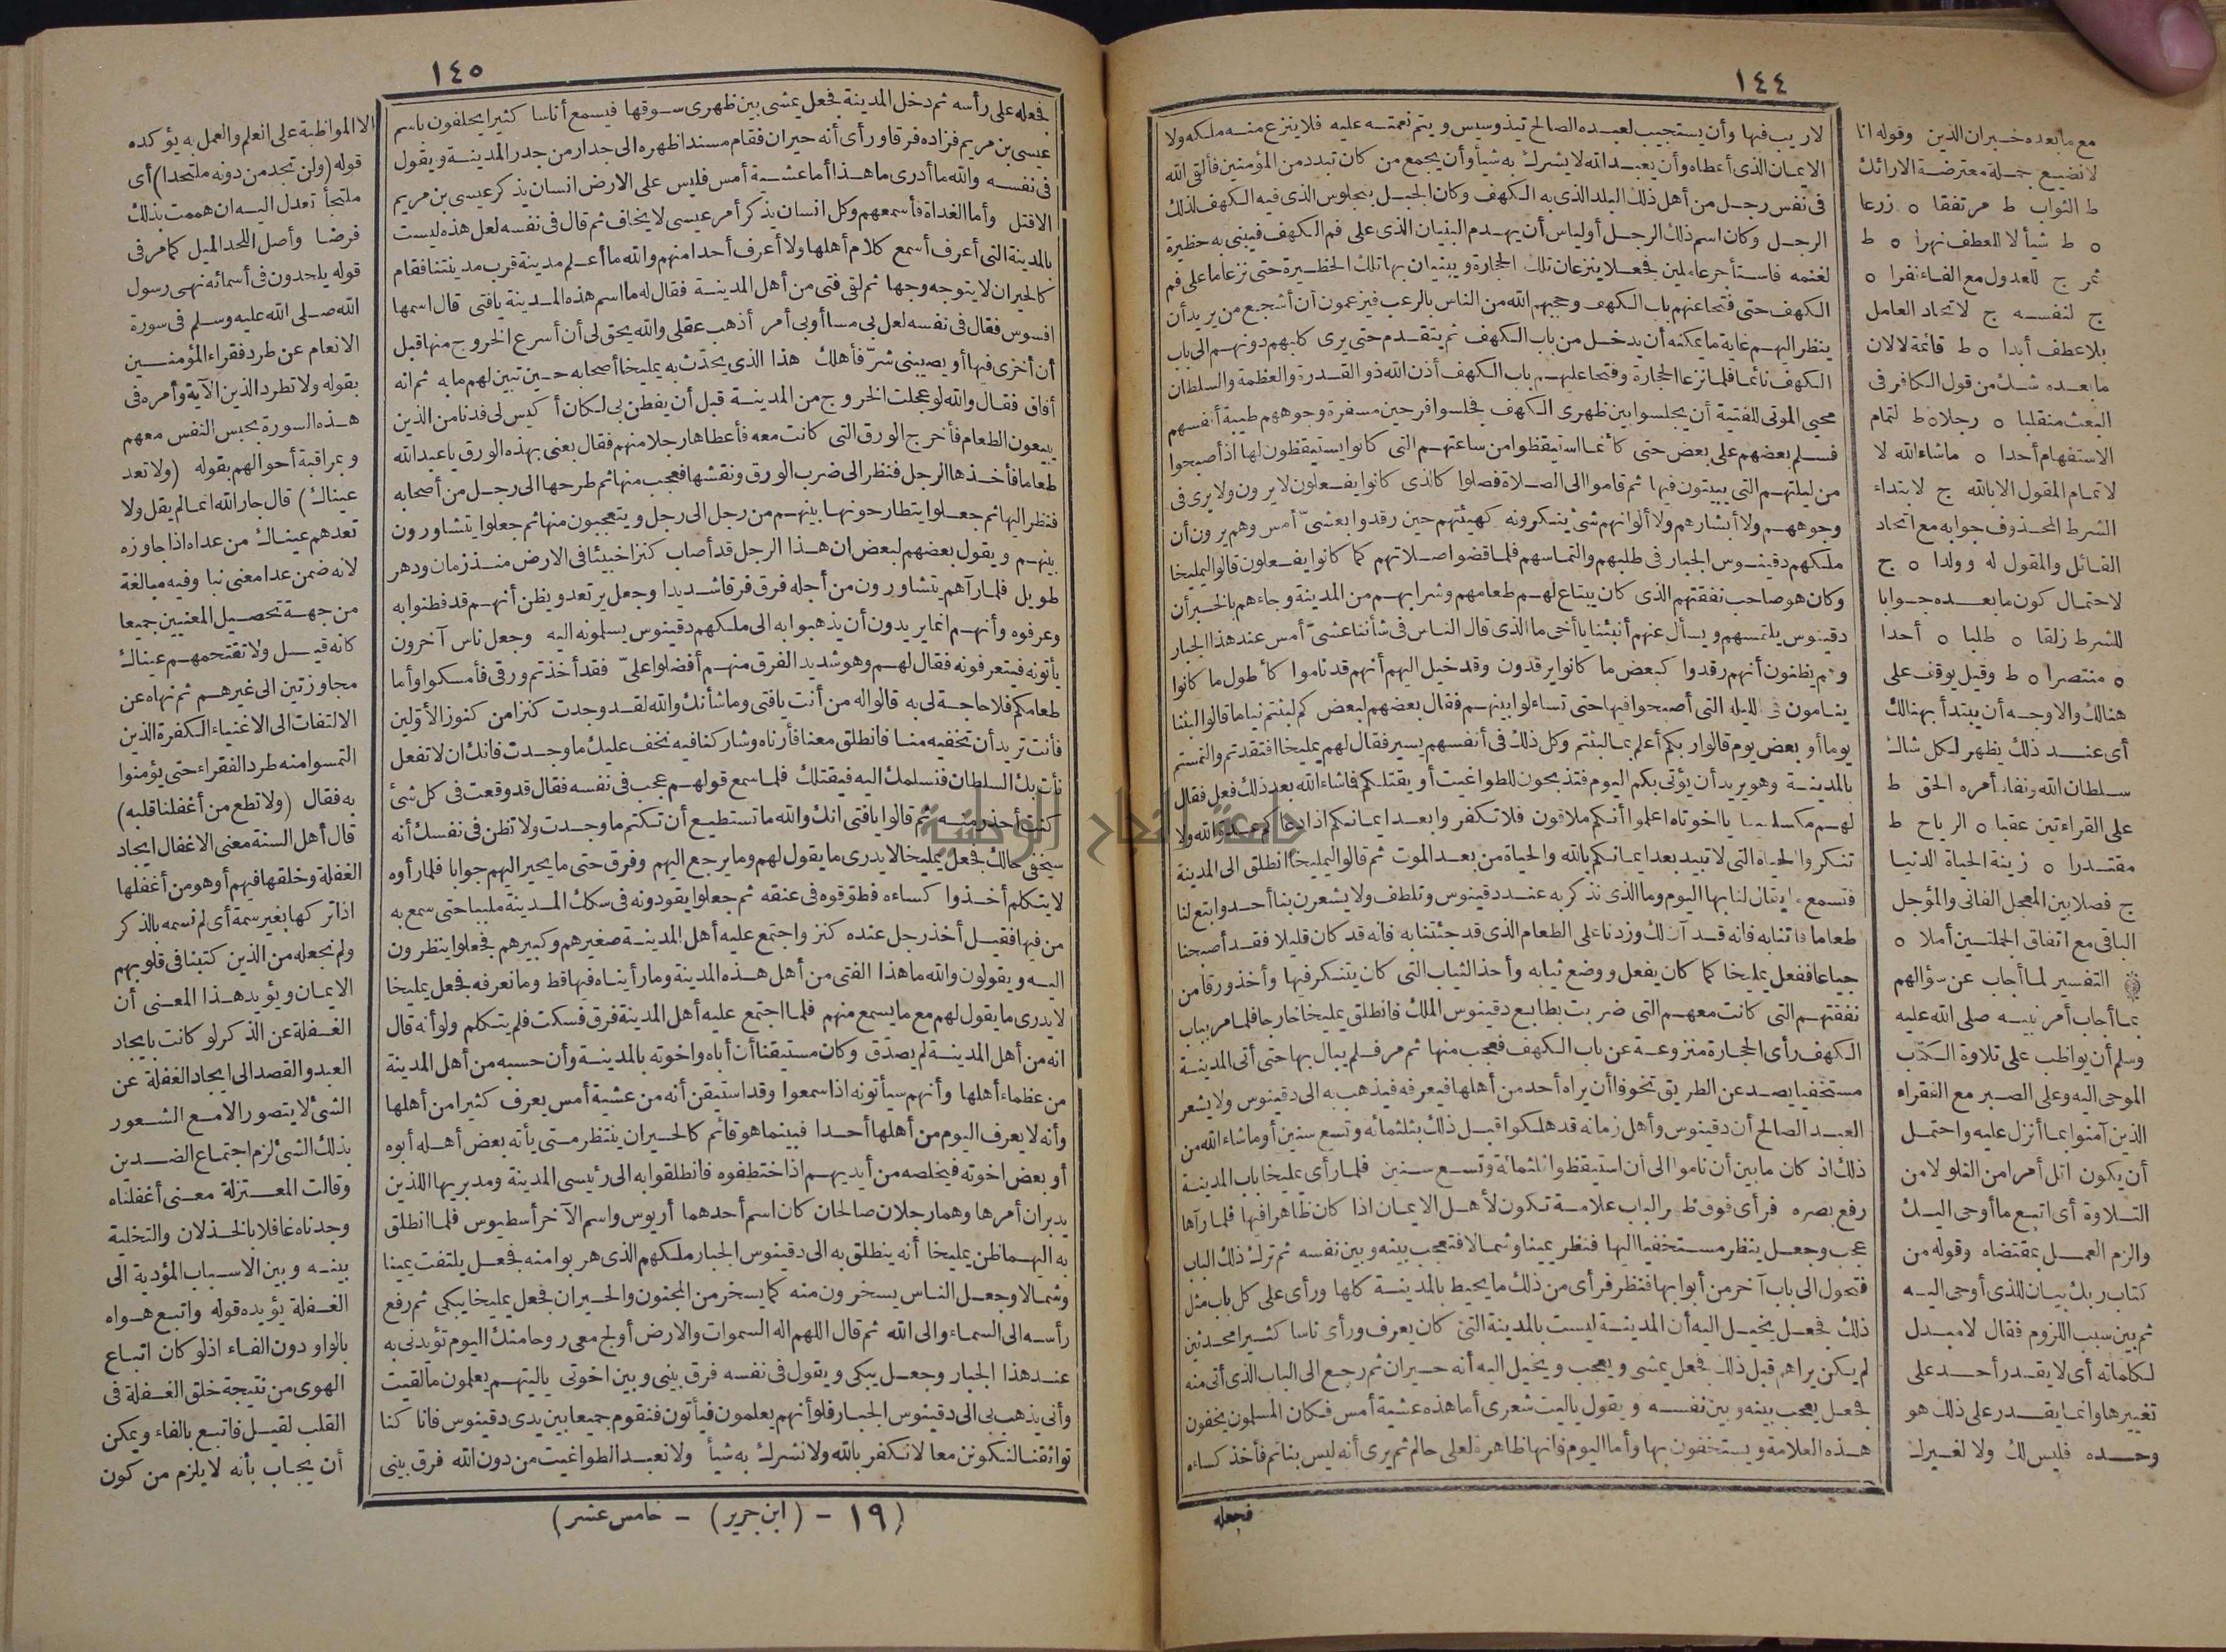 ١٤٤
لا ريب فيها وأن يستجيب لعبده الصالح تيذوسيس ويتم نعمته عليه فلا ينزع منه ملكه ولا
الايمان الذى أعطاه وأن يعبد الله لا يشرك به شيأ وأن يجمع من كان تبدد من المؤمنين فألقى الله
فى نفس رجل من أهل ذلك البلد الذى به الكهف وكان الجبل بنجلوس الذى فيه الكهف لذلك
الرجل وكان اسم ذلك الرجل أولياس أن يهدم البنيان الذى على فم الكهف فيبنى به حظيرة
لغنمه فاستأجر عاملين فجعلا ينزعان تلك الحجارة ويبنيان بها تلك الحظيرة حتى نزعا ما على فم
الكهف حتى فتحا عنهم باب الكهف وحجبهم الله من الناس بالرعب فيزعمون أن أشجع من يريد أن
ينظر اليهم غاية ما يمكنه أن يدخل من باب الكهف ثم يتقدم حتى يرى كلبهم دونهم الى باب
الكهف نائما فلما نزعا الحجارة وفتحا عليهم باب الكهف أذن الله ذو القدرة والعظمة والسلطان
محيى الموتى للفتية أن يجلسوا بين ظهرى الكهف فجلسوا فرحين مسفرة وجوههم طيبة أنفسهم
فسلم بعضهم على بعض حتى كأنما استيقظوا من ساعتهم التى كانوا يستيقظون لها اذ أصبحوا
من ليلتهم التى يبيتون فيها ثم قاموا الى الصلاة فصلوا كالذى كانوا يفعلون لا يرون ولا يرى فى
وجوههم ولا أبشارهم ولا ألوانهم شئ ينكرونه كهيئتهم حين رقدوا بعشىّ أمس وهم يرون أن
ملكهم دقينوس الجبار فى طلبهم والتماسهم فلما قضوا صلاتهم كما كانوا يفعلون قالوا ليمليخا
وكان هو صاحب نفقتهم الذى كان يبتاع لهم طعامهم وشرابهم من المدينة وجاءهم بالخبر أن
دقينوس يلتمسهم ويسأل عنهم أنبئنا يا أخى ما الذى قال الناس فى شأننا عشىّ أمس عند هذا الجبار
وهم يظنون أنهم رقدوا كبعض ما كانوا يرقدون وقد خيل اليهم أنهم قد ناموا كأطول ما كانوا
ينامون فى الليلة التى أصبحوا فيها حتى تساءلوا بينهم فقال بعضهم لبعض كم لبثتم نياما قالوا لبثنا
يوما أو بعض يوم قالوا ربكم أعلم بما لبثتم وكل ذلك فى أنفسهم يسير فقال لهم يمليخا افتقدتم والتمستم
بالمدينة وهو يريد أن يؤتى بكم اليوم فتذبحون للطواغيت أو يقتلكم فما شاء الله بعد ذلك فعل فقال
لهم مكسلمينا يا اخوتاه اعلموا أنكم ملاقون فلا تكفروا بعد ايمانكم اذا دعاكم عدو الله ولا
تنكروا الحياة التى لا تبيد بعد ايمانكم بالله والحياة من بعد الموت ثم قالوا ليمليخا انطلق الى المدينة
فتسمع ما يقال لنا بها اليوم وما الذى نذكر به عند دقينوس وتلطف ولا يشعرن بنا أحد وابتع لنا
طعاما فأتنا به فانه قد آن لك وزدنا على الطعام الذى قد جئتنا به فانه قد كان قليلا فقد أصبحنا
جياعا ففعل يمليخا كما كان يفعل ووضع ثيابه وأخذ الثياب التى كان يتنكر فيها وأخذ ورقا من
نفقتهم التى كانت معهم التى ضربت بطابع دقينوس الملك فانطلق يمليخا خارجا فلما مر بباب
الكهف رأى الحجارة منزوعة عن باب الكهف فعجب منها ثم مر فلم يبال بها حتى أتى المدينة
مستخفيا يصد عن الطريق تخوفا أن يراه أحد من أهلها فيعرفه فيذهب به الى دقينوس ولا يشعر
العبد الصالح أن دقينوس وأهل زمانه قد هلكوا قبل ذلك بثلثمائة وتسع سنين أو ما شاء الله من
ذلك اذ كان ما بين أن ناموا الى أن استيقظوا ثلثمائة وتسع سنين فلما رأى يمليخا باب المدينة
رفع بصره فرأى فوق ظهر الباب علامة تكون لأهل الايمان اذا كان ظاهرا فيها فلما رآها
عجب وجعل ينظر مستخفيا اليها فنظر يمينا وشمالا فتعجب بينه وبين نفسه ثم ترك ذلك الباب
فتحول الى باب آخر من أبوابها فنظر فرأى من ذلك ما يحيط بالمدينة كلها ورأى على كل باب مثل
ذلك فجعل يخيل اليه أن المدينة ليست بالمدينة التى كان يعرف ورأى ناسا كثيرا محدثين
لم يكن يراهم قبل ذلك فجعل يمشى ويعجب ويخيل اليه أنه حيران ثم رجع الى الباب الذى أتى منه
فجعل يعجب بينه وبين نفسه ويقول يا ليت شعرى أما هذه عشية أمس فكان المسلمون يخفون
هذه العلامة ويستخفون بها وأما اليوم فانها ظاهرة لعلى حالم ثم يرى أنه ليس بنائم فأخذ كساءه
فجعله
مع ما بعده خبر ان الذين وقوله انا
لا نضيع جملة معترضة الارائك
ط الثواب ط مرتفقا ه زرعا
ه ط شيأ لا للعطف نهرا ه ط
ثمر ج للعدول مع الفاء نفرا ه
ج لنفسه ج لاتحاد العامل
بلا عطف أبدا ه ط قائمة لا لان
ما بعده شك من قول الكافر فى
البعث منقلبا ه رجلا ه ط لتمام
الاستفهام أحدا ه ما شاء الله لا
لاتمام المقول الا بالله ج لابتداء
الشرط المحذوف جوابه مع اتحاد
القائل والمقول له وولدا ه ج
لاحتمال كون ما بعده جوابا
للشرط زلقا ه طلبا ه أحدا
ه منتصرا ه ط وقيل يوقف على
هنالك والاوجه أن يبتدأ بهنالك
أى عند ذلك يظهر لكل شاك
سلطان الله ونفاذ أمره الحق ط
على القراءتين عقبا ه الرياح ط
مقتدرا ه زينة الحياة الدنيا
ج فصلا بين المعجل الفانى والمؤجل
الباقى مع اتفاق الجملتين أملا ه
التفسير لما أجاب عن سؤالهم
بما أجاب أمر نبيه صلى الله عليه
وسلم أن يواظب على تلاوة الكتاب
الموحى اليه وعلى الصبر مع الفقراء
الذين آمنوا بما أنزل عليه واحتمل
أن يكون اتل أمرا من التلو لا من
التلاوة أى اتبع ما أوحى اليك
والزم العمل بمقتضاه وقوله من
كتاب ربك بيان للذى أوحى اليه
ثم بين سبب اللزوم فقال لا مبدل
لكلماته أى لا يقدر أحد على
تغييرها وانما يقدر على ذلك هو
وحده فليس لك ولا لغيرك
١٤٥
فجعله على رأسه ثم دخل المدينة فجعل يمشى بين ظهرى سوقها فيسمع أناسا كثيرا يحلفون باسم
عيسى بن مريم فزاده فرقا ورأى أنه حيران فقام مسندا ظهره الى جدار من جدر المدينة ويقول
فى نفسه والله ما أدرى ما هذا أما عشية أمس فليس على الارض انسان يذكر عيسى بن مريم
الا قتل وأما الغداة فأسمعهم وكل انسان يذكر أمر عيسى لا يخاف ثم قال فى نفسه لعل هذه ليست
بالمدينة التى أعرف أسمع كلام أهلها ولا أعرف أحدا منهم والله ما أعلم مدينة قرب مدينتنا فقام
كالحيران لا يتوجه وجها ثم لقى فتى من أهل المدينة فقال له ما اسم هذه المدينة يا فتى قال اسمها
افسوس فقال فى نفسه لعل بى مسا أو بى أمر أذهب عقلى والله يحق لى أن أسرع الخروج منها قبل
أن أخزى فيها أو يصيبنى شرّ فأهلك هذا الذى يحدّث به يمليخا أصحابه حين تبين لهم ما به ثم انه
أفاق فقال والله لو عجلت الخروج من المدينة قبل أن يفطن بى لكان أكيس لى فدنا من الذين
يبيعون الطعام فأخرج الورق التى كانت معه فأعطاها رجلا منهم فقال بعنى بهذه الورق يا عبد الله
طعاما فأخذها الرجل فنظر الى ضرب الورق ونقشها فعجب منها ثم طرحها الى رجل من أصحابه
فنظر اليها ثم جعلوا يتطارحونها بينهم من رجل الى رجل ويتعجبون منها ثم جعلوا يتشاورون
بينهم ويقول بعضهم لبعض ان هذا الرجل قد أصاب كنزا خبيئا فى الارض منذ زمان ودهر
طويل فلما رآهم يتشاورون من أجله فرق فرقا شديدا وجعل يرتعد ويظن أنهم قد فطنوا به
وعرفوه وأنهم انما يريدون أن يذهبوا به الى ملكهم دقينوس يسلمونه اليه وجعل ناس آخرون
يأتونه فيتعرفونه فقال لهم وهو شديد الفرق منهم أفضلوا علىّ فقد أخذتم ورقى فأمسكوا وأما
طعامكم فلا حاجة لى به قالوا له من أنت يا فتى وما شأنك والله لقد وجدت كنزا من كنوز الأوّلين
فأنت تريد أن تخفيه منا فانطلق معنا فأرناه وشاركنا فيه نخف عليك ما وجدت فانك ان لا تفعل
نأت بك السلطان فنسلمك اليه فيقتلك فلما سمع قولهم عجب فى نفسه فقال قد وقعت فى كل شئ
كنت أحذر منه ثم قالوا يا فتى انك والله ما تستطيع أن تكتم ما وجدت ولا تظن فى نفسك أنه
سيخفى حالك فجعل يمليخا لا يدرى ما يقول لهم وما يرجع اليهم وفرق حتى ما يحير اليهم جوابا فلما رأوه
لا يتكلم أخذوا كساءه فطوّقوه فى عنقه ثم جعلوا يقودونه فى سكك المدينة ملببا حتى سمع به
من فيها فقيل أخذ رجل عنده كنز واجتمع عليه أهل المدينة صغيرهم وكبيرهم فجعلوا ينظرون
اليه ويقولون والله ما هذا الفتى من أهل هذه المدينة وما رأيناه فيها قط وما نعرفه فجعل يمليخا
لا يدرى ما يقول لهم مع ما يسمع منهم فلما اجتمع عليه أهل المدينة فرق فسكت فلم يتكلم ولو أنه قال
انه من أهل المدينة لم يصدّق وكان مستيقنا أن أباه واخوته بالمدينة وأن حسبه من أهل المدينة
من عظماء أهلها وأنهم سيأتونه اذا سمعوا وقد استيقن أنه من عشية أمس يعرف كثيرا من أهلها
وأنه لا يعرف اليوم من أهلها أحدا فبينما هو قائم كالحيران ينتظر متى يأته بعض أهله أبوه
أو بعض اخوته فيخلصه من أيديهم اذ اختطفوه فانطلقوا به الى رئيسى المدينة ومدبريها اللذين
يدبران أمرها وهما رجلان صالحان كان اسم أحدهما أريوس واسم الآخر أسطيوس فلما انطلق
به اليهما ظن يمليخا أنه ينطلق به الى دقينوس الجبار ملكهم الذى هربوا منه فجعل يلتفت يمينا
وشمالا وجعل الناس يسخرون منه كما يسخر من المجنون والحيران فجعل يمليخا يبكى ثم رفع
رأسه الى السماء والى الله ثم قال اللهم اله السموات والارض أولج معى روحا منك اليوم تؤيدنى به
عند هذا الجبار وجعل يبكى ويقول فى نفسه فرق بينى وبين اخوتى يا ليتهم يعلمون ما لقيت
وأنى يذهب بى الى دقينوس الجبار فلو أنهم يعلمون فيأتون فنقوم جميعا بين يدى دقينوس فانا كنا
تواثقنا لنكونن معا لا نكفر بالله ولا نشرك به شيأ ولا نعبد الطواغيت من دون الله فرق بينى
(١٩ - (ابن جرير) - خامس عشر)
الا المواظبة على العلم والعمل به يؤكده
قوله (ولن تجد من دونه ملتحدا) أى
ملتجأ تعدل اليه ان هممت بذلك
فرضا وأصل اللحد الميل كما مر فى
قوله يلحدون فى أسمائه نهى رسول
الله صلى الله عليه وسلم فى سورة
الانعام عن طرد فقراء المؤمنين
بقوله ولا تطرد الذين الآية وأمره فى
هذه السورة بحبس النفس معهم
وبمراقبة أحوالهم بقوله (ولا تعد
عيناك) قال جار الله انما لم يقل ولا
تعدهم عيناك من عداه اذا جاوزه
لانه ضمن عدا معنى نبا وفيه مبالغة
من جهة تحصيل المعنيين جميعا
كانه قيل ولا تقتحمهم عيناك
مجاوزتين الى غيرهم ثم نهاه عن
الالتفات الى الاغنياء الكفرة الذين
التمسوا منه طرد الفقراء حتى يؤمنوا
به فقال (ولا تطع من أغفلنا قلبه)
قال أهل السنة معنى الاغفال ايجاد
الغفلة وخلقها فيهم أو هو من أغفلها
اذا تركها بغير سمة أى لم نسمه بالذكر
ولم نجعله من الذين كتبنا فى قلوبهم
الايمان ويؤيد هذا المعنى أن
الغفلة عن الذكر لو كانت بايجاد
العبد والقصد الى ايجاد الغفلة عن
الشئ لا يتصور الا مع الشعور
بذلك الشئ لزم اجتماع الضدين
وقالت المعتزلة معنى أغفلناه
وجدناه غافلا بالخذلان والتخلية
بينه وبين الاسباب المؤدية الى
الغفلة يؤيده قوله واتبع هواه
بالواو دون الفاء اذ لو كان اتباع
الهوى من نتيجة خلق الغفلة فى
القلب لقيل فاتبع بالفاء ويمكن
أن يجاب بأنه لا يلزم من كون
جامعة النجاح الوطنية